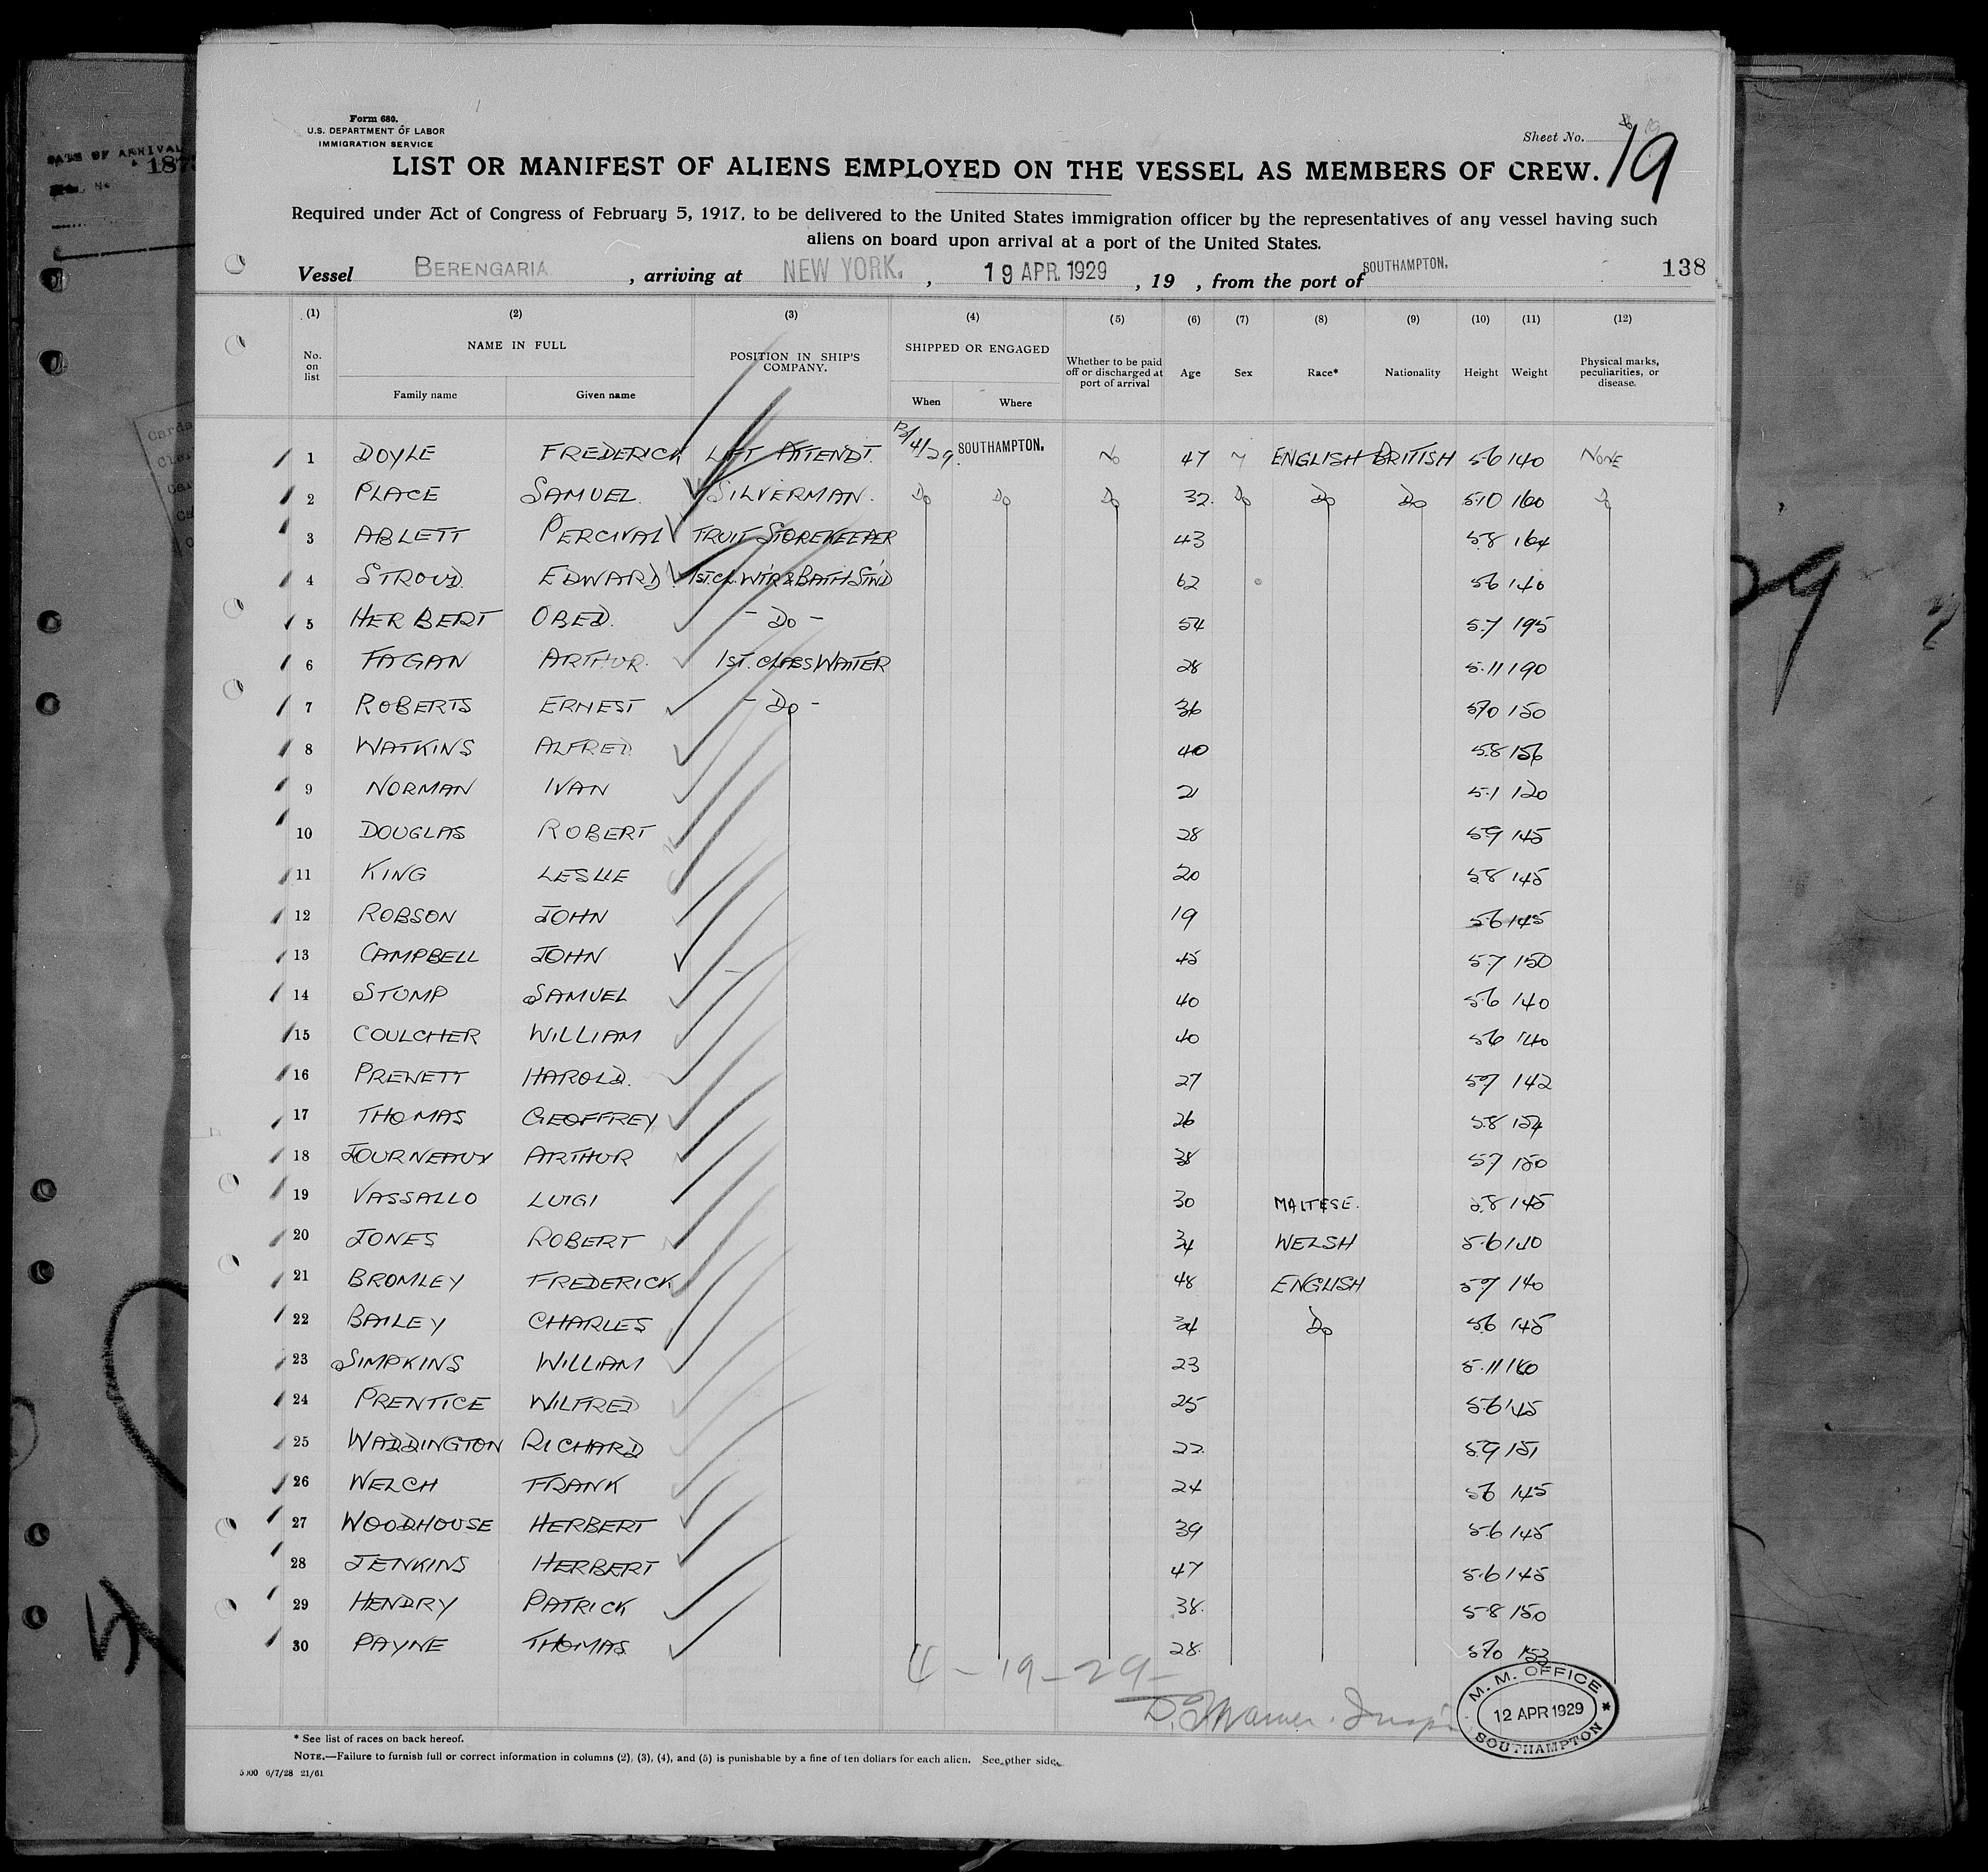 DATE OF ARRIVAL
Form 680.
U.S. DEPARTMENT OF LABOR
IMMIGRATION SERVICE
Sheet No. 19
LIST OR MANIFEST OF ALIENS EMPLOYED ON THE VESSEL AS MEMBERS OF CREW.
Required under Act of Congress of February 5, 1917, to be delivered to the United States immigration officer by the representatives of any vessel having such
aliens on board upon arrival at a port of the United States.
Vessel BERENGARIA, arriving at NEW YORK. , 19 APR. 1929 , 19 , from the port of SOUTHAMPTON. 138
(1) (2) (3) (4) (5) (6) (7) (8) (9) (10) (11) (12)
No. on list NAME IN FULL POSITION IN SHIP'S COMPANY. SHIPPED OR ENGAGED Whether to be paid off or discharged at port of arrival Age Sex Race* Nationality Height Weight Physical marks, peculiarities, or disease.
Family name Given name When Where
1 DOYLE FREDERICK LIFT ATTENDT. /4/29. SOUTHAMPTON. No 47 ENGLISH BRITISH 5.6 140 NONE
2 PLACE SAMUEL. SILVERMAN. Do Do Do 32. Do Do Do 5.10 160 Do
3 ABLETT PERCIVAL FRUIT STOREKEEPER 43 5.8 164
4 STROUD. EDWARD. 1ST.CL.WTR & BATH STWD 62 5.6 140
5 HERBERT OBED. - Do - 54 5.7 195
6 FAGAN ARTHUR. 1ST. CLASS WAITER 28 5.11 190
7 ROBERTS ERNEST - Do - 36 5.10 150
8 WATKINS ALFRED 40 5.8 156
9 NORMAN IVAN 21 5.1 120
10 DOUGLAS ROBERT 28 5.9 145
11 KING LESLIE 20 5.8 145
12 ROBSON JOHN 19 5.6 145
13 CAMPBELL JOHN 45 5.7 150
14 STUMP SAMUEL 40 5.6 140
15 COULCHER WILLIAM 40 5.6 140
16 PREWETT HAROLD. 27 5.7 142
17 THOMAS GEOFFREY 26 5.8 154
18 JOURNEAUX ARTHUR 38 5.7 150
19 VASSALLO LUIGI 30 MALTESE. 5.8 145
20 JONES ROBERT 34 WELSH 5.6 140
21 BROMLEY FREDERICK 48 ENGLISH 5.7 140
22 BAILEY CHARLES 34 Do 5.6 145
23 SIMPKINS WILLIAM 23 5.11 160
24 PRENTICE WILFRED 25 5.6 145
25 WADDINGTON RICHARD 22. 5.9 151
26 WELCH FRANK 24 5.6 145
27 WOODHOUSE HERBERT 39 5.6 145
28 JENKINS HERBERT 47 5.6 145
29 HENDRY PATRICK 38. 5.8 150
30 PAYNE THOMAS. 28. 5.10 153
4-19-29-
M. M. OFFICE
12 APR 1929
SOUTHAMPTON
* See list of races on back hereof.
NOTE.—Failure to furnish full or correct information in columns (2), (3), (4), and (5) is punishable by a fine of ten dollars for each alien. See other side.
6/7/28 21/61